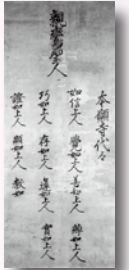 本願寺代々
親鸞聖人
如信上人 覺如上人 善如上人 綽如上人
巧如上人 存如上人 蓮如上人 實如上人
證如上人 顕如上人 教如